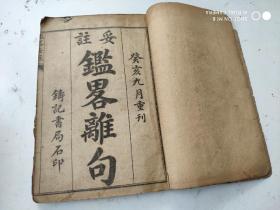 癸亥九月重刊
妥註
鑑畧離句
鑄記書局石印